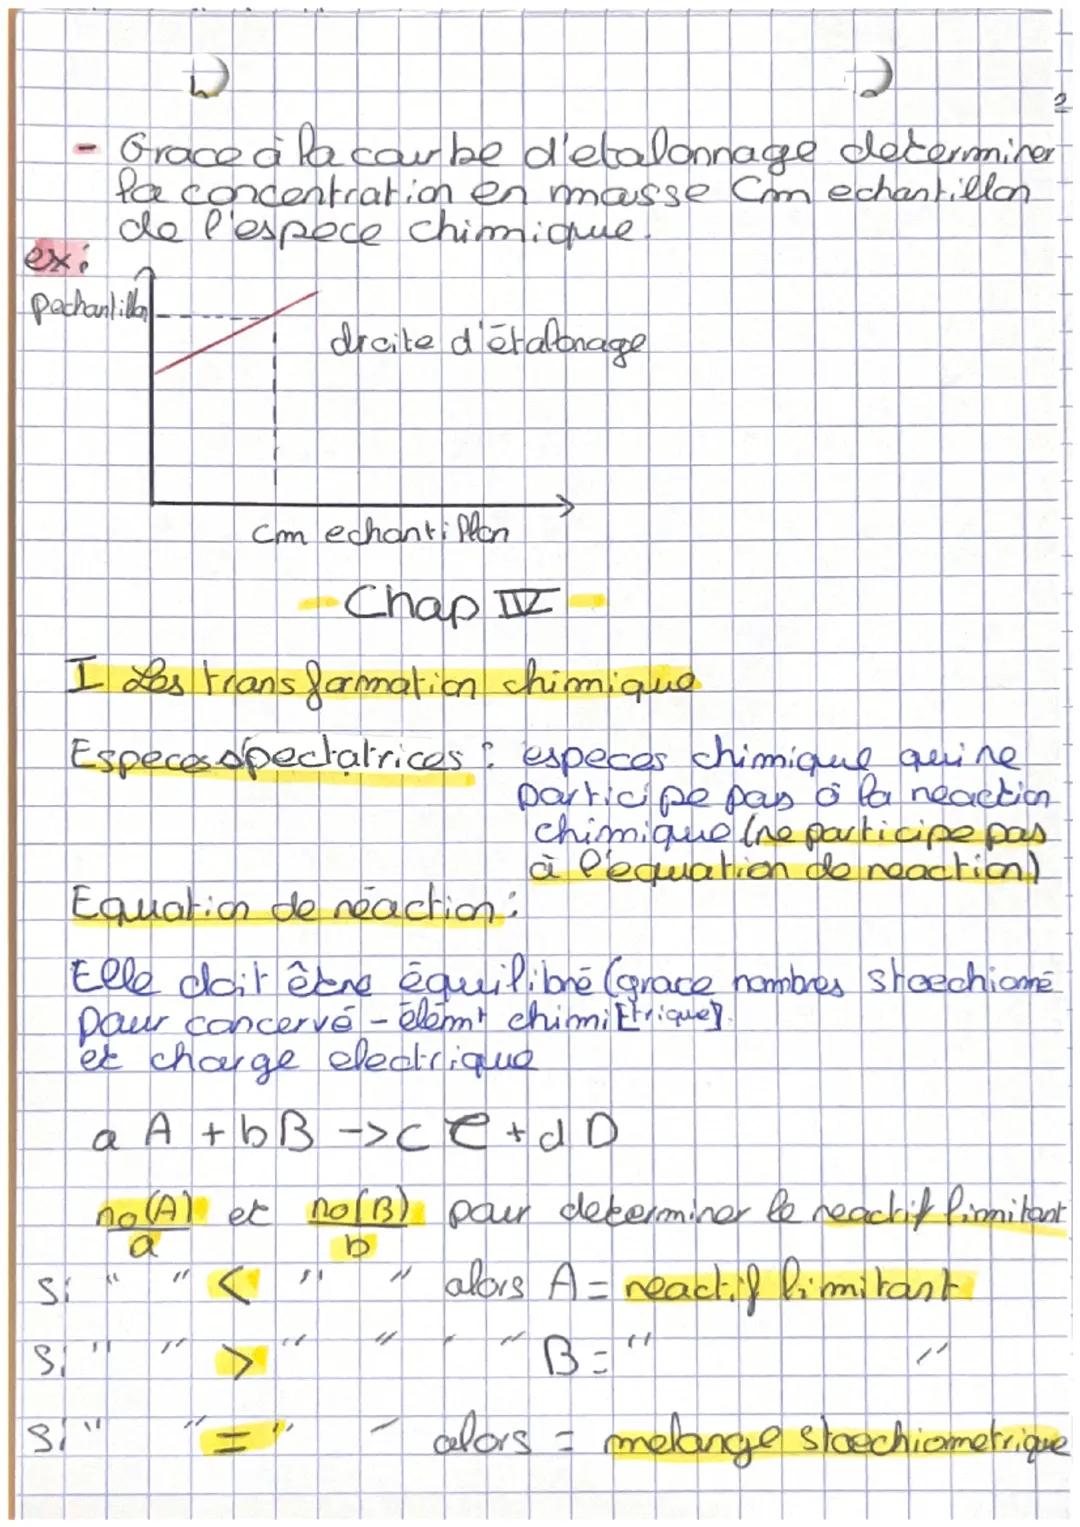 2
- Grace à la courbe d'etalonnage determiner
la concentration en masse Cm echantillon
de l'espece chimique.
ex:
ρechantillon
droite d'étalonage
cm echantillon
- Chap IV -
I Les transformation chimique
Especes spectatrices : especes chimique qui ne
participe pas à la reaction
chimique (ne participe pas
à l'equation de reaction)
Equation de réaction :
Elle doit être équilibré (grace nombres stoechiomé
pour concervé - élémt chimi [trique]
et charge electrique
a A + b B -> c C + d D
no(A)/a et no(B)/b pour determiner le reactif limitant
si " " < " " alors A = reactif limitant
si " " > " " " " B = " "
si " " = " " alors = melange stoechiometrique